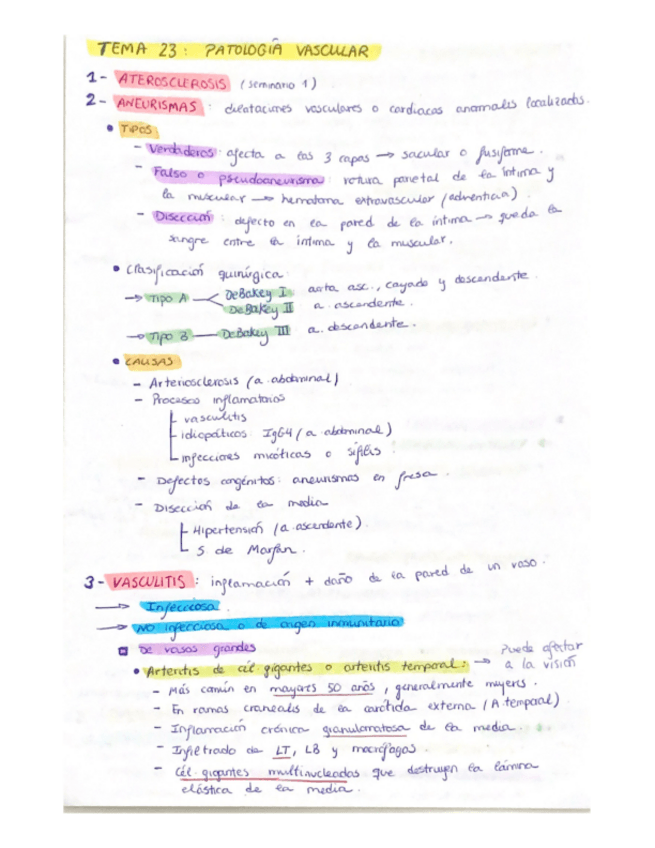 TEMA 23: PATOLOGÍA VASCULAR
1- ATEROSCLEROSIS (seminario 1)
2- ANEURISMAS: dilataciones vasculares o cardiacas anomalas localizadas.
• TIPOS
- Verdaderos: afecta a las 3 capas → sacular o fusiforme.
- Falso o pseudoaneurisma: rotura parietal de la íntima y
la muscular → hematoma extravascular (adventicia)
- Disección: defecto en la pared de la íntima → queda la
sangre entre la íntima y la muscular.
• Clasificación quirúrgica.
→ Tipo A — DeBakey I aorta asc., cayado y descendente.
DeBakey II a. ascendente.
→ Tipo B — DeBakey III a. descendente.
• CAUSAS
- Arteriosclerosis (a. abdominal)
- Procesos inflamatorios
vasculitis
idiopáticos: IgG4 (a. abdominal)
infecciones micóticas o sífilis
- Defectos congénitos: aneurismas en fresa.
- Disección de la media
Hipertensión (a. ascendente)
S de Marfan.
3- VASCULITIS: inflamación + daño de la pared de un vaso.
→ Infecciosa
→ No infecciosa o de origen inmunitario
De vasos grandes
• Arteritis de cél. gigantes o arteritis temporal: → Puede afectar
a la visión
- Más común en mayores 50 años, generalmente mujeres.
- En ramas craneales de la carótida externa (A. temporal)
- Inflamación crónica granulomatosa de la media.
- Infiltrado de LT, LB y macrófagos.
- Cél. gigantes multinucleadas que destruyen la lámina
elástica de la media.